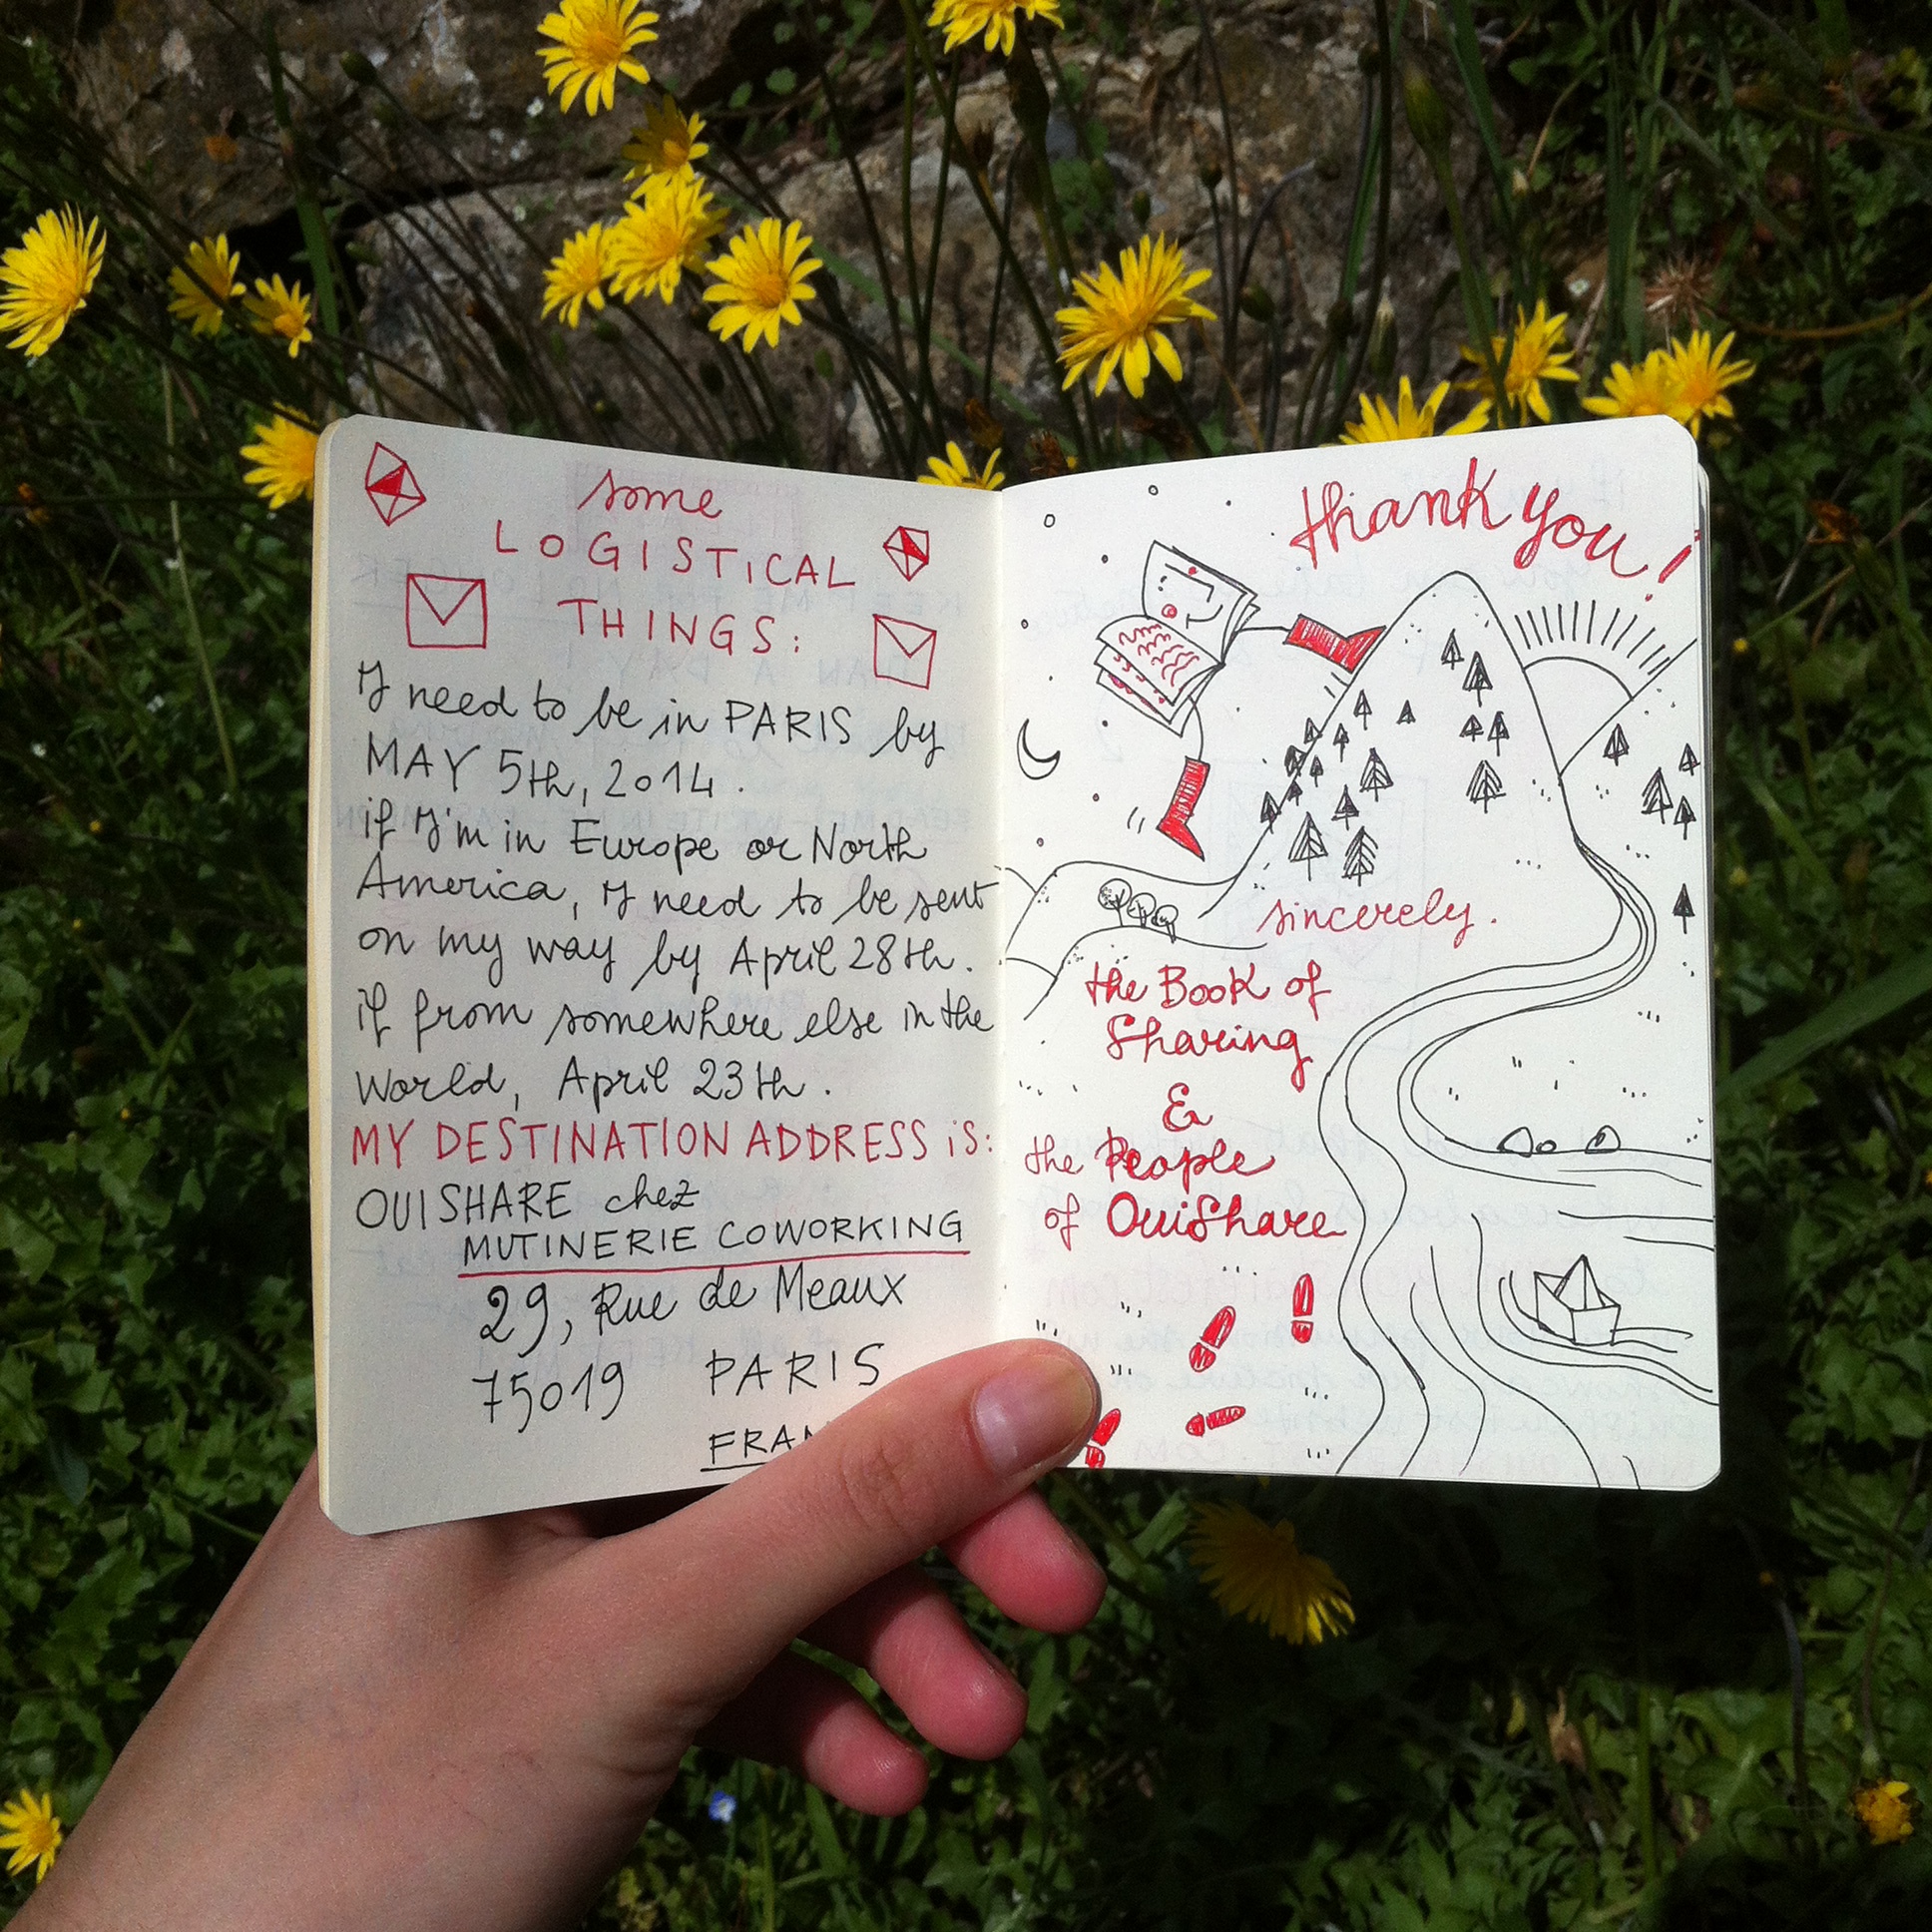 some
LOGISTICAL
THINGS:
I need to be in PARIS by
MAY 5th, 2014.
if I'm in Europe or North
America, I need to be sent
on my way by April 28th.
if from somewhere else in the
World, April 23th.
MY DESTINATION ADDRESS is:
OUISHARE chez
MUTINERIE COWORKING
29, Rue de Meaux
75019 PARIS
FRAN
thank you!
sincerely.
the Book of
Sharing
&
the People
of OuiShare